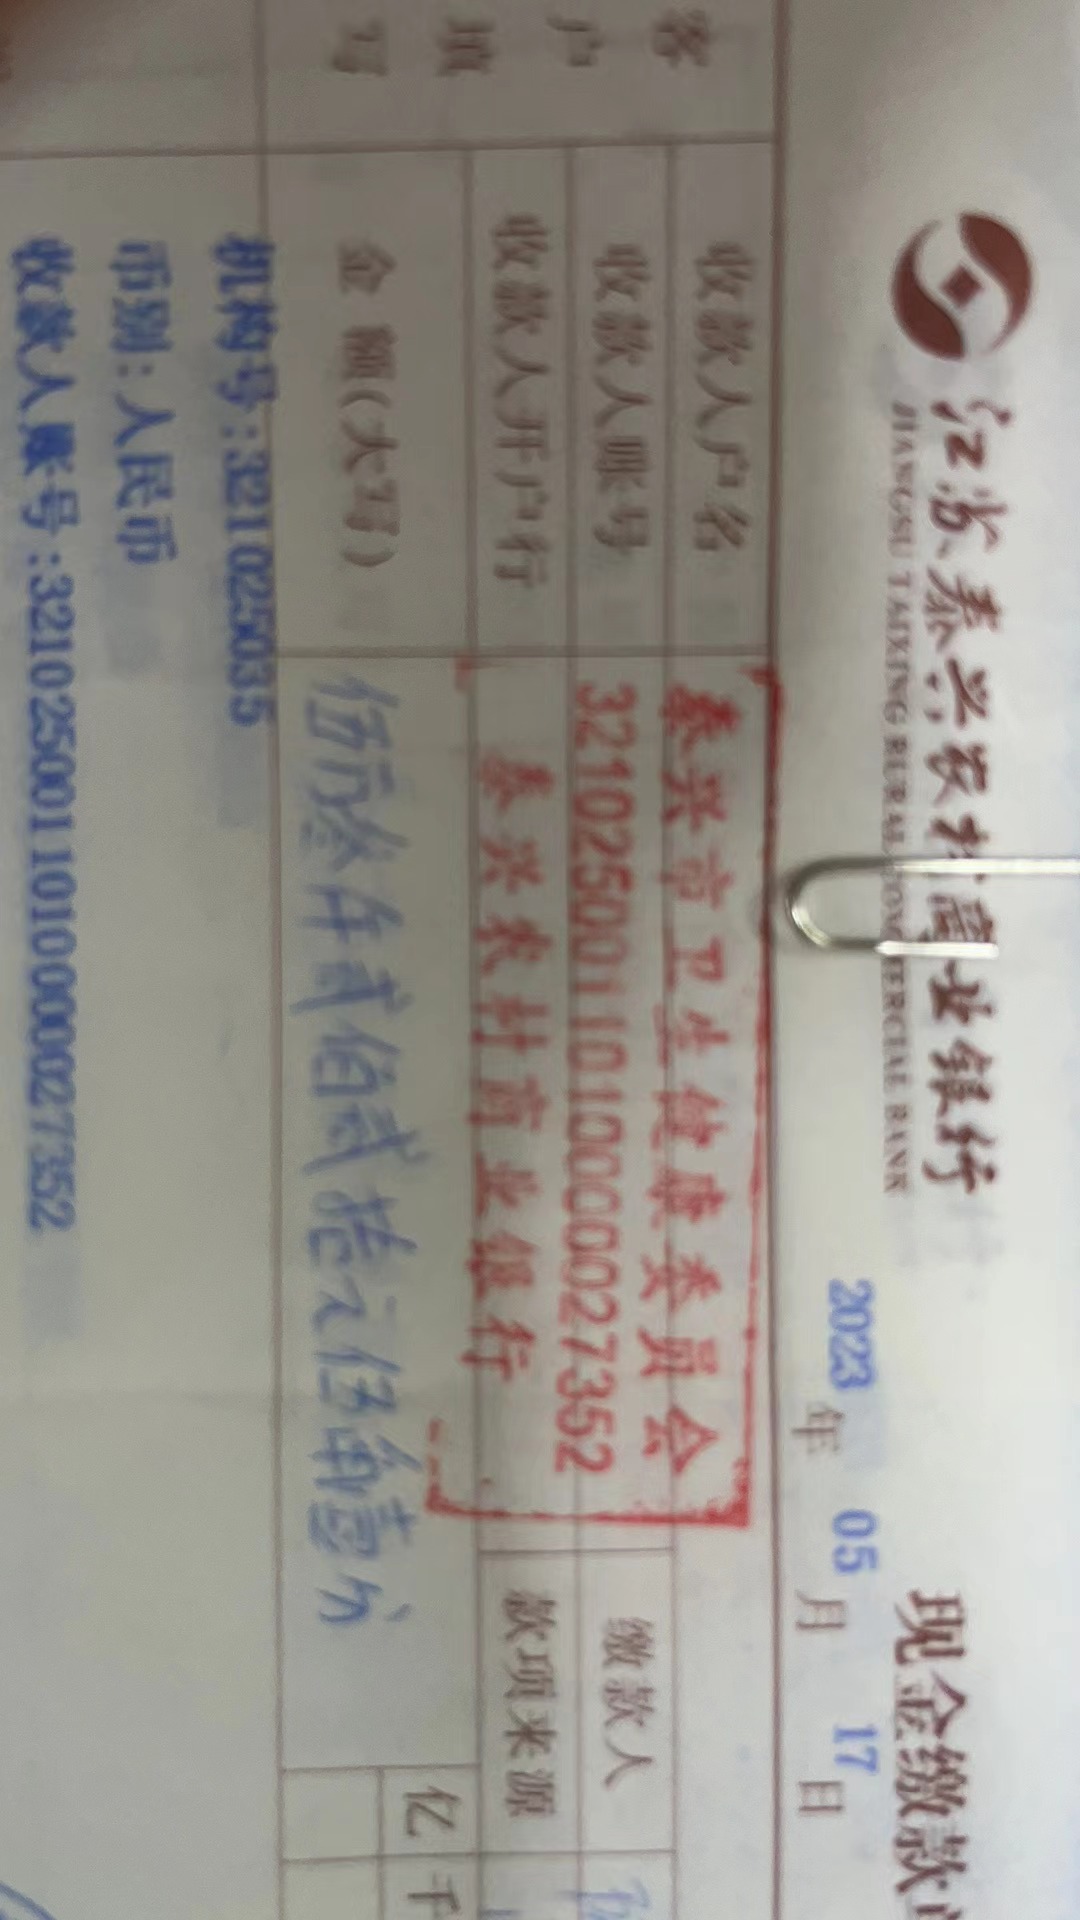 江苏泰兴农村商业银行
JIANGSU TAIXING RURAL COMMERCIAL BANK
现金缴款
2023年05月17日
客户填写
收款人户名 泰兴市卫生健康委员会
收款人账号 3210250011010000027352
缴款人
收款人开户行 泰兴农村商业银行
款项来源
金额(大写) 伍万叁仟贰佰贰拾元伍角壹分
亿 千
机构号:321025035
币别:人民币
收款人账号:3210250011010000027352